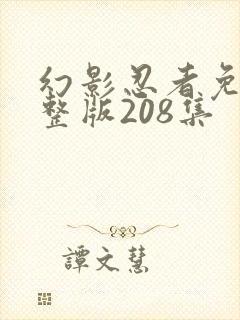 幻影忍者免
整版208集
譚文慧